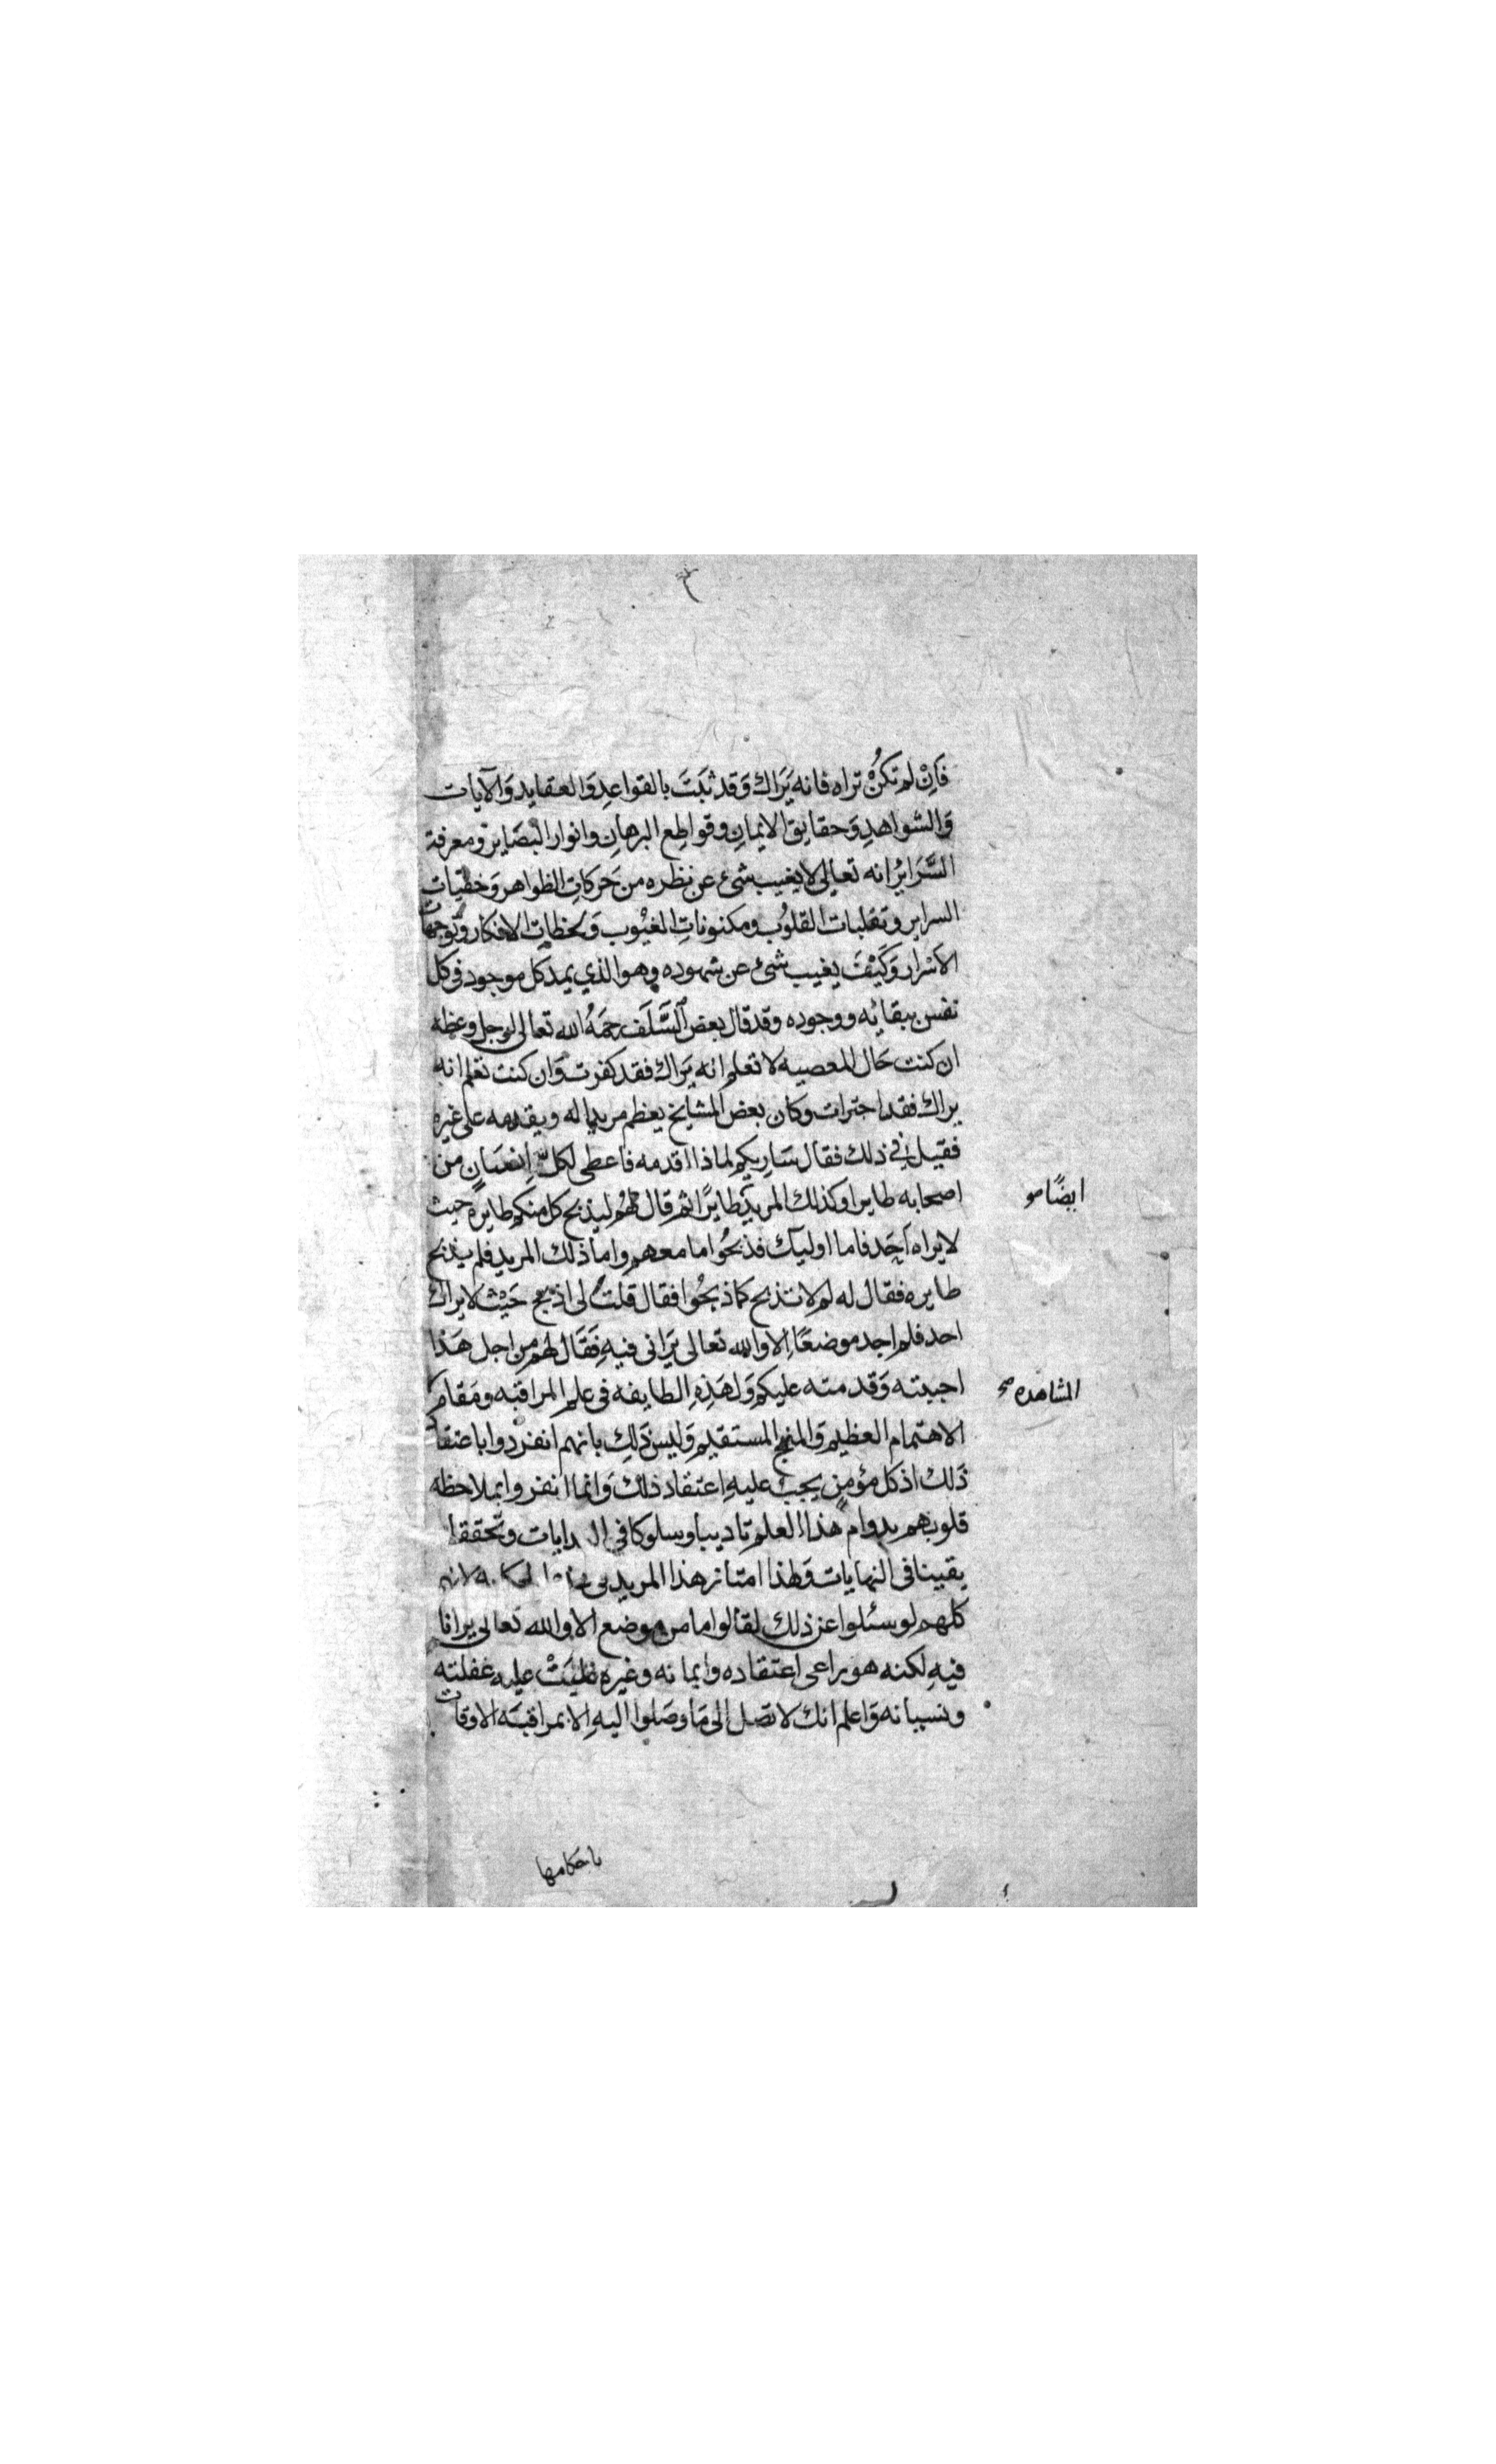 فَاِنْ لم تكُنْ تراه فانه يَرَاك وَقد ثبَتَ بالقواعِدِ وَالعقايد وَالآيات
وَالشواهدِ وَحقايق الايمانِ وقواطِع البرهانِ وانوار البَصَاير ومعرفة
السَّرَايرُ انه تعالى لا يغيب شىء عن نظره من حَركاتِ الظواهر وَخفيّات
السراير وتقلبات القلوُب ومكنوناتِ الغيُوب وَلحظات الافكار وتَوجهات
الاَسْرار وَكَيْفَ يغيب شىء عن شهوده وهو الذي يمد كل موجود فى كل
نفس ببقائه ووجوده وقد قال بعض السَّلَف رحمَهُ الله تعالى لرجل وعظه
ان كنت حَال المعصيه لا تعلم انه يَراك فقد كفرت وَان كنت تعلم انه
يراك فقد اجترات وكان بعض المشايخ يعظم مريدا له ويقدمه على غيره
فقيل فى ذلك فقال سَاريكم لماذا اقدمه فاعطى لكل اِنسَان من
اصحابه طايرا وكذلك المريدَ طايرًا ثم قال لهُم ليذبح كل منكم طايرَه حيث
لا يراه اَحَد فاما اوليآك فذبحُوا ما معهم واما ذلك المريد فلم يذبح
طايره فقال له لم لا تذبح كما ذبحُوا فقال قلتُ لى اذبح حَيْث لا يراك
احد فلم اجد موضعًا اِلا والله تعالى يَرَانى فيهِ فَقَال لهم من اجل هَذا
احببته وَقدمته عليكم وَلهَذِهِ الطايفه فى علم المراقبَه ومَقام
الاهتمام العظيم وَالمنهج المستقيم وَليسَ ذَلِك بانهم انفردوا باعتقاد
ذَلك اذ كل مؤمنٍ يجب عليهِ اعتقاد ذلك وَانما انفردوا بملاحظه
قلوبهم بدوام هذا العلم تاديبا وسلوكا في البدايات وتحققا
يقينا فى النهايات وَلهذا امتاز هذا المريد لانهم
كلهم لو سئلوا عن ذلك لقالوا ما من موضع الا والله تعالى يرانا
فيهِ لكنه هو يراعى اعتقاده وايمانه وغيره غلبَتْ عليه غفلته
ونسيانه وَاعلم انك لا تصل اِلى مَا وصَلوا اليهِ الا بمراقبَة الاوقات
ايضًا
المشاهده صح
باحكامها